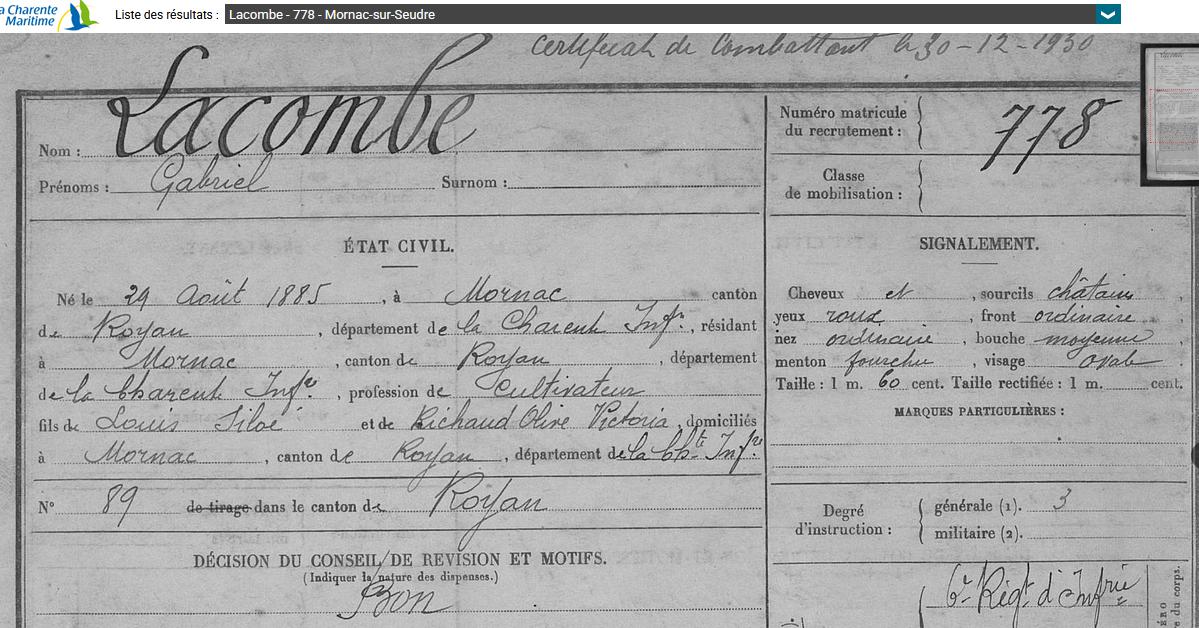 La Charente
Maritime
Liste des résultats : Lacombe - 778 - Mornac-sur-Seudre
Certificat de Combattant le 30-12-1930
Nom : Lacombe
Prénoms : Gabriel Surnom :
Numéro matricule
du recrutement : 778
Classe
de mobilisation :
ÉTAT CIVIL.
Né le 29 Août 1885, à Mornac canton
de Royan, département de la Charente Infre, résidant
à Mornac, canton de Royan, département
de la Charente Infre, profession de Cultivateur
fils de Louis Siloé et de Richaud Olive Victoria, domiciliés
à Mornac, canton de Royan, département de la Chte Infre
N° 89 de tirage dans le canton de Royan
DÉCISION DU CONSEIL DE REVISION ET MOTIFS.
(Indiquer la nature des dispenses.)
Bon
SIGNALEMENT.
Cheveux et, sourcils châtains,
yeux roux, front ordinaire,
nez ordinaire, bouche moyenne,
menton fourchu, visage ovale
Taille : 1 m. 60 cent. Taille rectifiée : 1 m. cent.
MARQUES PARTICULIÈRES :
Degré
d'instruction :
générale (1). 3
militaire (2).
6e Régt d'Infrie
du corps.